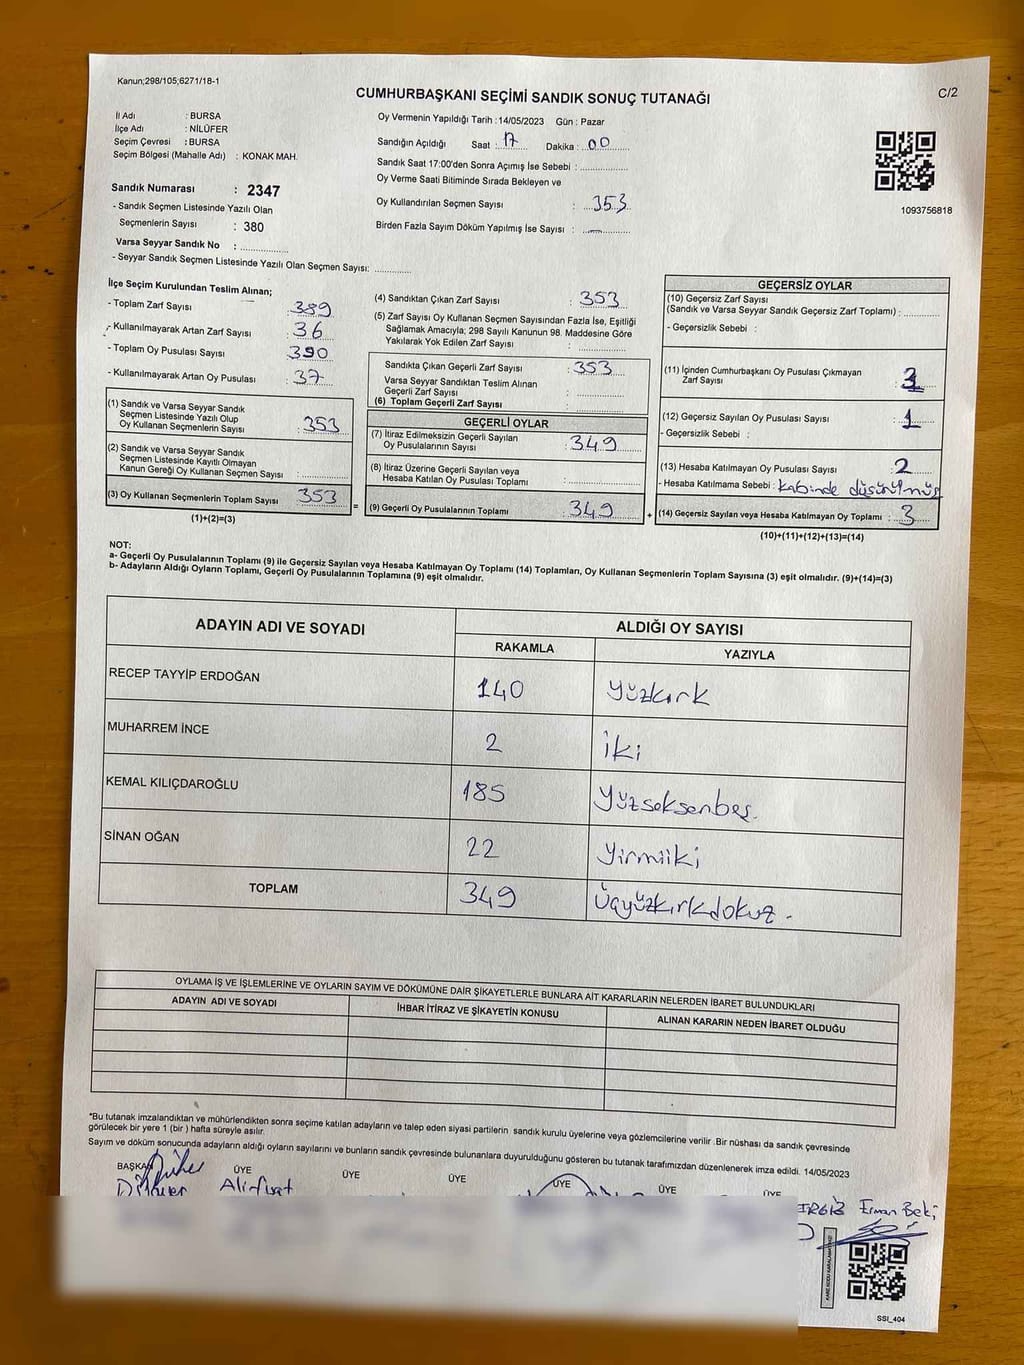 Kanun;298/105;6271/18-1
C/2
CUMHURBAŞKANI SEÇİMİ SANDIK SONUÇ TUTANAĞI
İl Adı : BURSA
İlçe Adı : NİLÜFER
Seçim Çevresi : BURSA
Seçim Bölgesi (Mahalle Adı) : KONAK MAH.
Sandık Numarası : 2347
- Sandık Seçmen Listesinde Yazılı Olan
Seçmenlerin Sayısı : 380
Varsa Seyyar Sandık No : ..............
- Seyyar Sandık Seçmen Listesinde Yazılı Olan Seçmen Sayısı: ............
Oy Vermenin Yapıldığı Tarih :14/05/2023 Gün : Pazar
Sandığın Açıldığı Saat : 17 Dakika : 00
Sandık Saat 17:00'den Sonra Açımış İse Sebebi : ..............
Oy Verme Saati Bitiminde Sırada Bekleyen ve
Oy Kullandırılan Seçmen Sayısı : 353
Birden Fazla Sayım Döküm Yapılmış İse Sayısı : ..............
1093756818
İlçe Seçim Kurulundan Teslim Alınan;
- Toplam Zarf Sayısı : 389
- Kullanılmayarak Artan Zarf Sayısı : 36
- Toplam Oy Pusulası Sayısı : 390
- Kullanılmayarak Artan Oy Pusulası : 37
(1) Sandık ve Varsa Seyyar Sandık
Seçmen Listesinde Yazılı Olup
Oy Kullanan Seçmenlerin Sayısı : 353
(2) Sandık ve Varsa Seyyar Sandık
Seçmen Listesinde Kayıtlı Olmayan
Kanun Gereği Oy Kullanan Seçmen Sayısı : ..............
(3) Oy Kullanan Seçmenlerin Toplam Sayısı : 353
(1)+(2)=(3)
(4) Sandıktan Çıkan Zarf Sayısı : 353
(5) Zarf Sayısı Oy Kullanan Seçmen Sayısından Fazla İse, Eşitliği
Sağlamak Amacıyla; 298 Sayılı Kanunun 98. Maddesine Göre
Yakılarak Yok Edilen Zarf Sayısı : ..............
Sandıkta Çıkan Geçerli Zarf Sayısı : 353
Varsa Seyyar Sandıktan Teslim Alınan
Geçerli Zarf Sayısı : ..............
(6) Toplam Geçerli Zarf Sayısı : ..............
=
GEÇERLİ OYLAR
(7) İtiraz Edilmeksizin Geçerli Sayılan
Oy Pusulalarının Sayısı : 349
(8) İtiraz Üzerine Geçerli Sayılan veya
Hesaba Katılan Oy Pusulası Toplamı : ..............
(9) Geçerli Oy Pusulalarının Toplamı : 349
+
GEÇERSİZ OYLAR
(10) Geçersiz Zarf Sayısı
(Sandık ve Varsa Seyyar Sandık Geçersiz Zarf Toplamı) : ..........
- Geçersizlik Sebebi :
(11) İçinden Cumhurbaşkanı Oy Pusulası Çıkmayan
Zarf Sayısı :
(12) Geçersiz Sayılan Oy Pusulası Sayısı : 1
- Geçersizlik Sebebi :
(13) Hesaba Katılmayan Oy Pusulası Sayısı : 2
- Hesaba Katılmama Sebebi : kabinde düşürülmüş
(14) Geçersiz Sayılan veya Hesaba Katılmayan Oy Toplamı : 3
(10)+(11)+(12)+(13)=(14)
NOT:
a- Geçerli Oy Pusulalarının Toplamı (9) ile Geçersiz Sayılan veya Hesaba Katılmayan Oy Toplamı (14) Toplamları, Oy Kullanan Seçmenlerin Toplam Sayısına (3) eşit olmalıdır. (9)+(14)=(3)
b- Adayların Aldığı Oyların Toplamı, Geçerli Oy Pusulalarının Toplamına (9) eşit olmalıdır.
ADAYIN ADI VE SOYADI ALDIĞI OY SAYISI
RAKAMLA YAZIYLA
RECEP TAYYİP ERDOĞAN 140 Yüzkırk
MUHARREM İNCE 2 iki
KEMAL KILIÇDAROĞLU 185 Yüzseksenbeş.
SİNAN OĞAN 22 Yirmiiki
TOPLAM 349 Üçyüzkırkdokuz.
OYLAMA İŞ VE İŞLEMLERİNE VE OYLARIN SAYIM VE DÖKÜMÜNE DAİR ŞİKAYETLERLE BUNLARA AİT KARARLARIN NELERDEN İBARET BULUNDUKLARI
ADAYIN ADI VE SOYADI İHBAR İTİRAZ VE ŞİKAYETİN KONUSU ALINAN KARARIN NEDEN İBARET OLDUĞU
*Bu tutanak imzalandıktan ve mühürlendikten sonra seçime katılan adayların ve talep eden siyasi partilerin sandık kurulu üyelerine veya gözlemcilerine verilir .Bir nüshası da sandık çevresinde
görülecek bir yere 1 (bir ) hafta süreyle asılır.
Sayım ve döküm sonucunda adayların aldığı oyların sayılarını ve bunların sandık çevresinde bulunanlara duyurulduğunu gösteren bu tutanak tarafımızdan düzenlenerek imza edildi. 14/05/2023
BAŞKAN ÜYE ÜYE ÜYE ÜYE ÜYE ÜYE
Alifuat
Erman
SSI_404